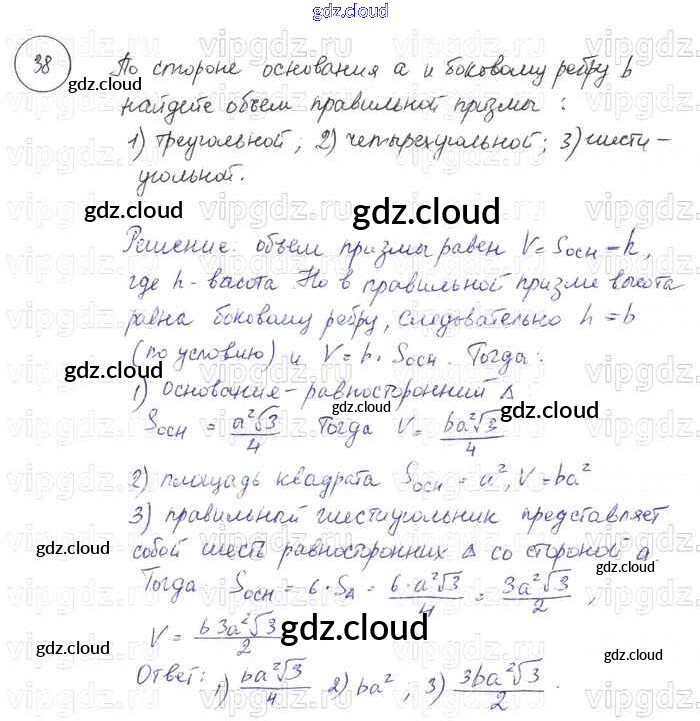 gdz.cloud
38 По стороне основания a и боковому ребру b
gdz.cloud
найдете объем правильной призмы :
1) треугольной; 2) четырехугольной; 3) шести-
угольной.
gdz.cloud gdz.cloud gdz.cloud
Решение: объем призмы равен V = Sосн - h,
где h - высота Но в правильной призме высота
равна боковому ребру, следовательно h = b
(по условию) и V = b · Sосн. Тогда:
gdz.cloud gdz.cloud
1) основания - равносторонний Δ
gdz.cloud gdz.cloud
Sосн = a²√3/4 Тогда V = ba²√3/4
2) площадь квадрата Sосн = a², V = ba²
3) правильный шестиугольник представляет
собой шесть равносторонних Δ со стороной a
gdz.cloud gdz.cloud
Тогда Sосн = 6 · SΔ = 6·a²√3/4 = 3a²√3/2 ,
V = b3a²√3/2
gdz.cloud gdz.cloud gdz.cloud
Ответ: 1) ba²√3/4 2) ba² ; 3) 3ba²√3/2 .